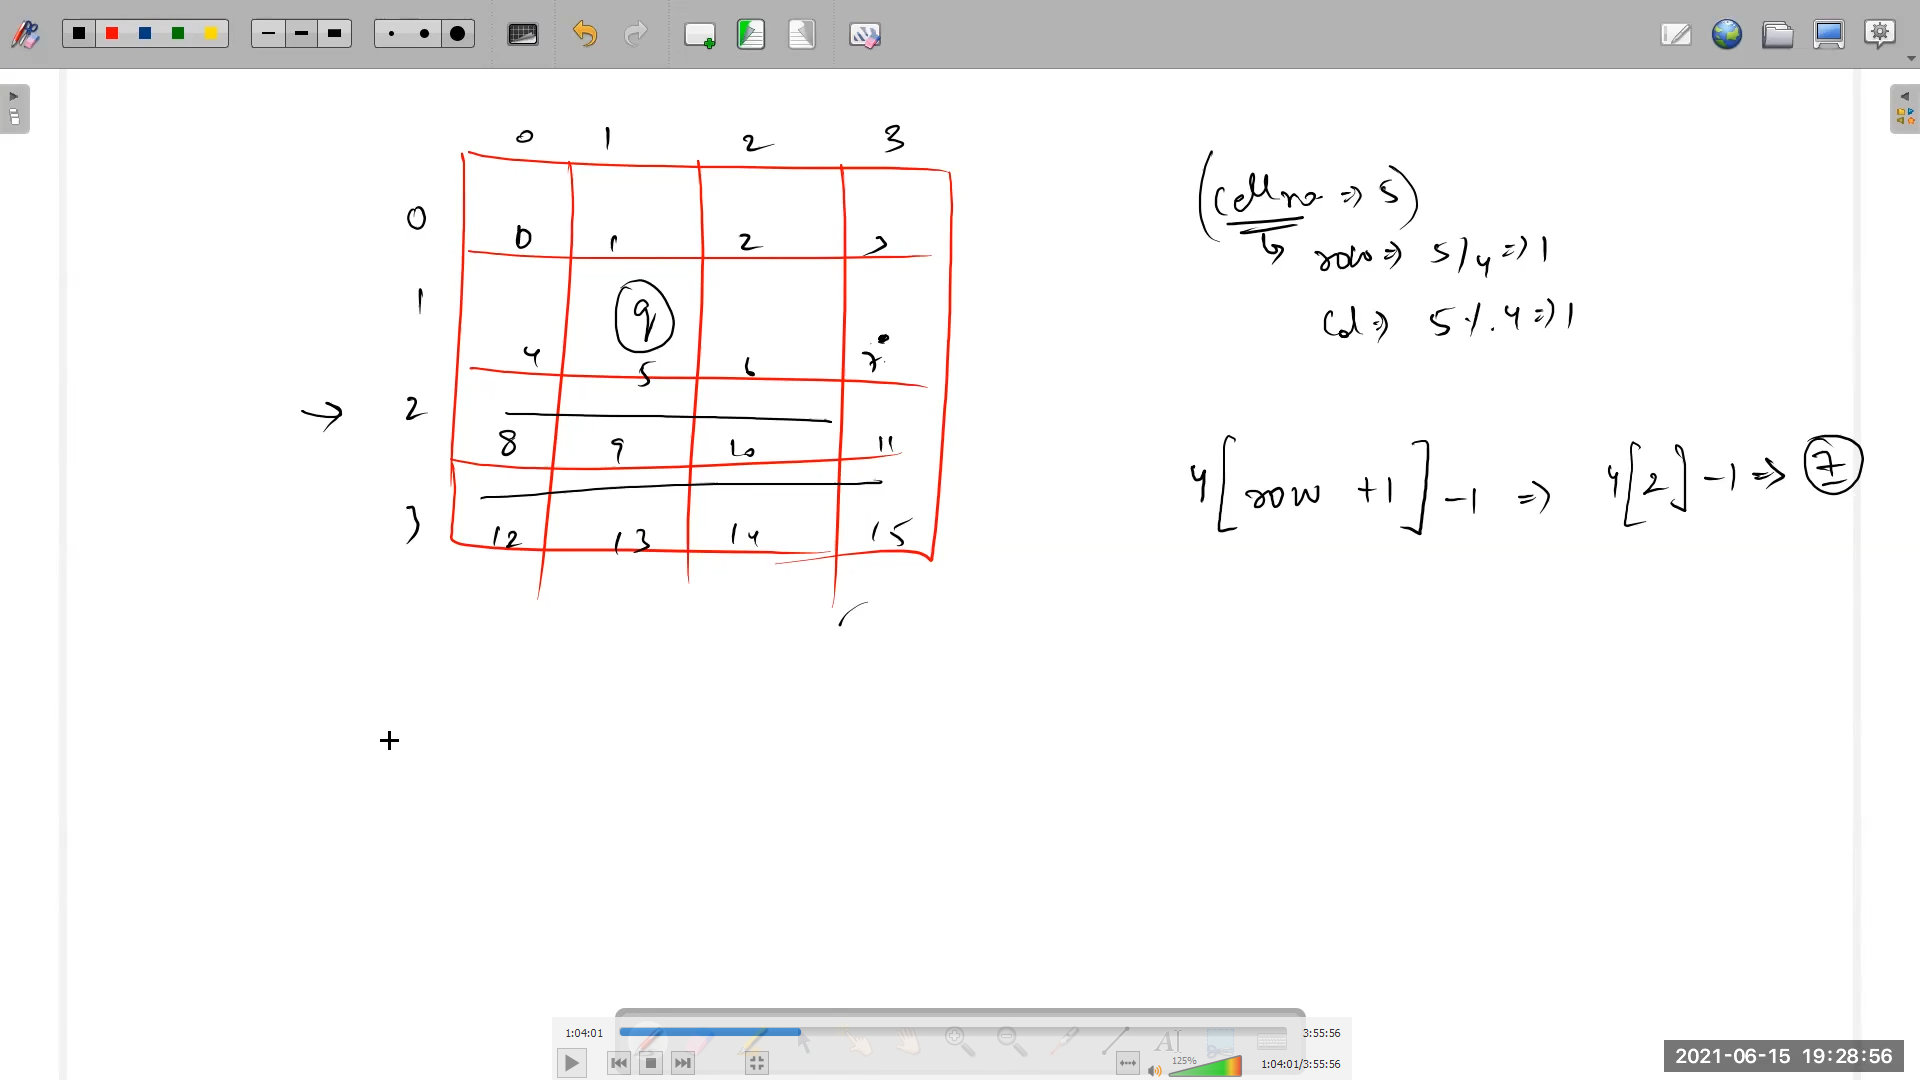 0 1 2 3
0
0 1 2 3
1
q
4 5 6 7
→ 2
8 9 10 11
3
12 13 14 15
(cell no => 5)
row => 5/4 => 1
col => 5 % 4 => 1
4[row +1] -1 => 4[2] -1 => 7
1:04:01
3:55:56
125%
1:04:01/3:55:56
2021-06-15 19:28:56